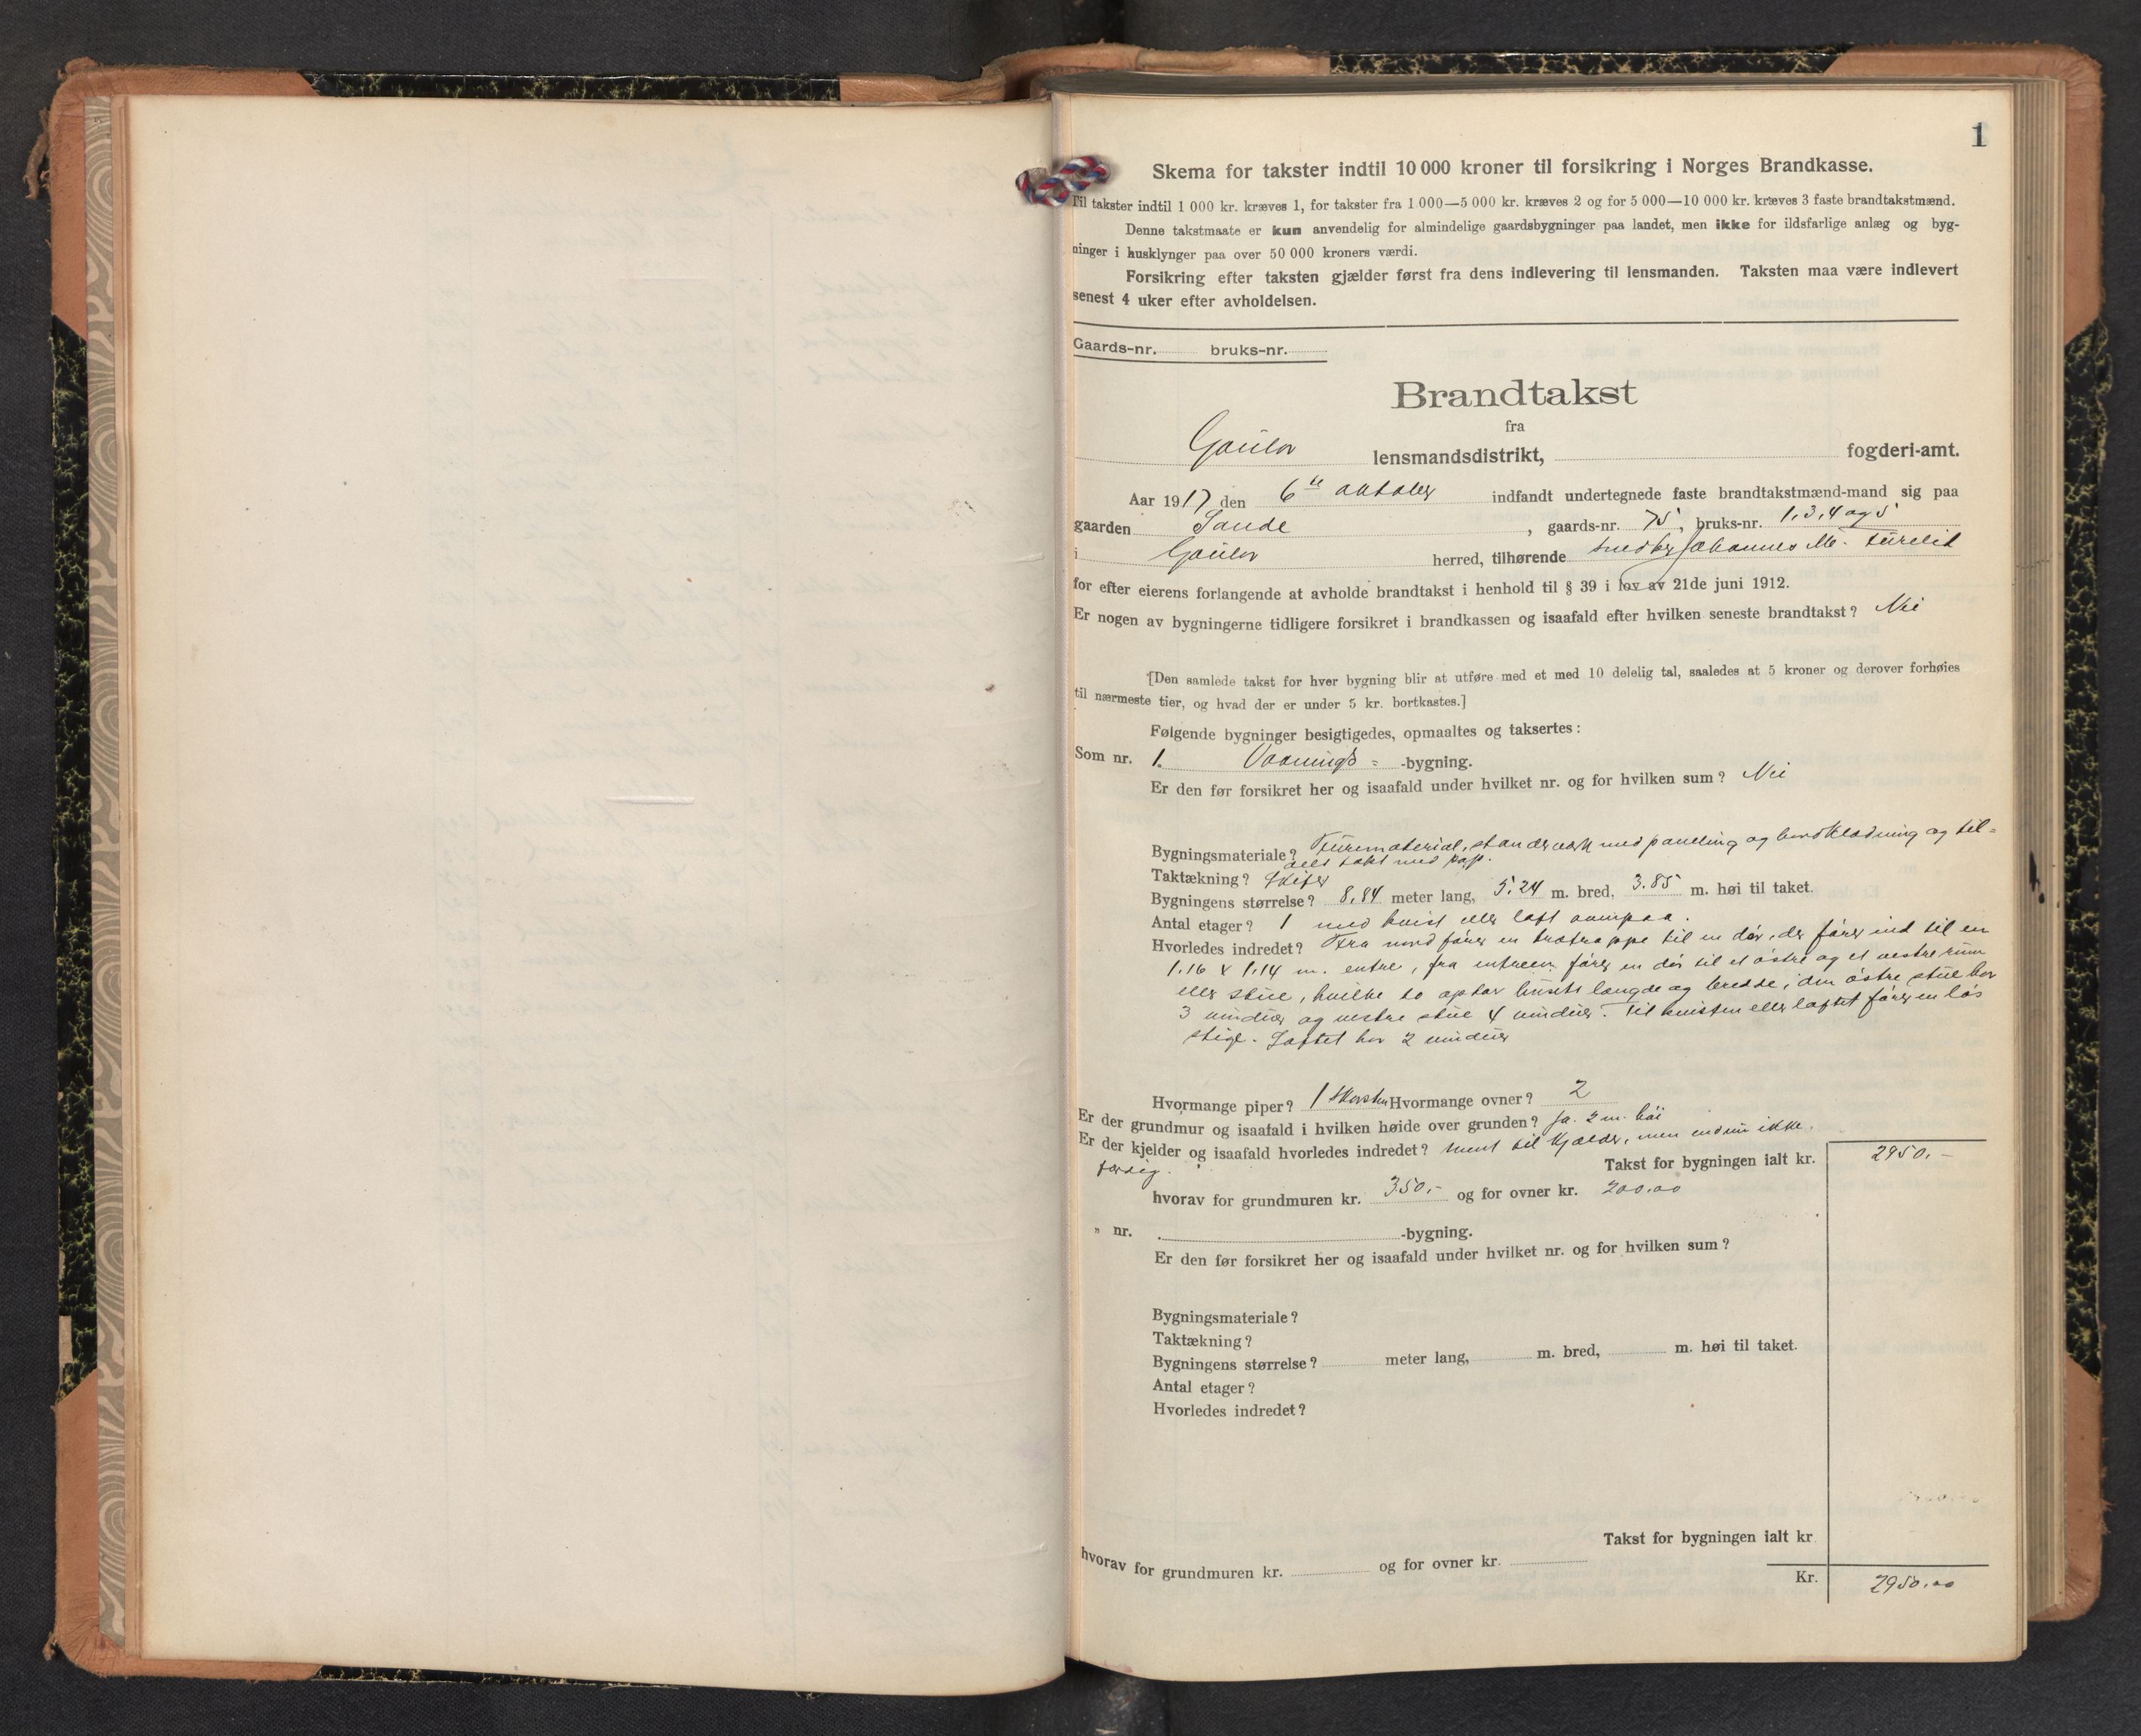 1
Skema for takster indtil 10 000 kroner til forsikring i Norges Brandkasse.
Til takster indtil 1 000 kr. kræves 1, for takster fra 1 000—5 000 kr. kræves 2 og for 5 000—10 000 kr. kræves 3 faste brandtakstmænd.
Denne takstmaate er kun anvendelig for almindelige gaardsbygninger paa landet, men ikke for ildsfarlige anlæg og byg-
ninger i husklynger paa over 50 000 kroners værdi.
Forsikring efter taksten gjælder først fra dens indlevering til lensmanden. Taksten maa være indlevert
senest 4 uker efter avholdelsen.
Gaards-nr. bruks-nr.
Brandtakst
fra
Gaular lensmandsdistrikt, fogderi-amt.
Aar 1917 den 6te oktober indfandt undertegnede faste brandtakstmænd-mand sig paa
gaarden Sande, gaards-nr. 75, bruks-nr. 1, 3, 4 og 5
i Gaular herred, tilhørende Johannes M.
for efter eierens forlangende at avholde brandtakst i henhold til § 39 i lov av 21de juni 1912.
Er nogen av bygningerne tidligere forsikret i brandkassen og isaafald efter hvilken seneste brandtakst? Nei
[Den samlede takst for hver bygning blir at utføre med et med 10 delelig tal, saaledes at 5 kroner og derover forhøies
til nærmeste tier, og hvad der er under 5 kr. bortkastes.]
Følgende bygninger besigtigedes, opmaaltes og taksertes:
Som nr. 1. Vaanings= -bygning.
Er den før forsikret her og isaafald under hvilket nr. og for hvilken sum? Nei
Bygningsmateriale? Furumaterial, standverk med paneling og bordklædning og til=
dels takt med pap.
Taktækning? Skifer
Bygningens størrelse? 8,84 meter lang, 5,24 m. bred, 3.85 m. høi til taket.
Antal etager? 1 med kvist eller loft ovenpaa.
Hvorledes indredet? Fra nord fører en trætrappe til en dør, der fører ind til en
1,16 x 1,14 m. entre, fra entreen fører en dør til et østre og et vestre rum
eller stue, hvilke to optar husets længde og bredde, den østre stue har
3 vinduer og vestre stue 4 vinduer. Til kvisten eller loftet fører en løs
stige. Loftet har 2 vinduer
Hvormange piper? 1 skorsten Hvormange ovner? 2
Er der grundmur og isaafald i hvilken høide over grunden? Ja. 2 m. høi
Er der kjelder og isaafald hvorledes indredet? ment til kjælder, men endnu ikke
færdig. Takst for bygningen ialt kr. 2950.-
hvorav for grundmuren kr. 350,- og for ovner kr. 200.00
„ nr. . -bygning.
Er den før forsikret her og isaafald under hvilket nr. og for hvilken sum?
Bygningsmateriale?
Taktækning?
Bygningens størrelse? meter lang, m. bred, m. høi til taket.
Antal etager?
Hvorledes indredet?
Takst for bygningen ialt kr
hvorav for grundmuren kr. og for ovner kr.
Kr. 2950.00